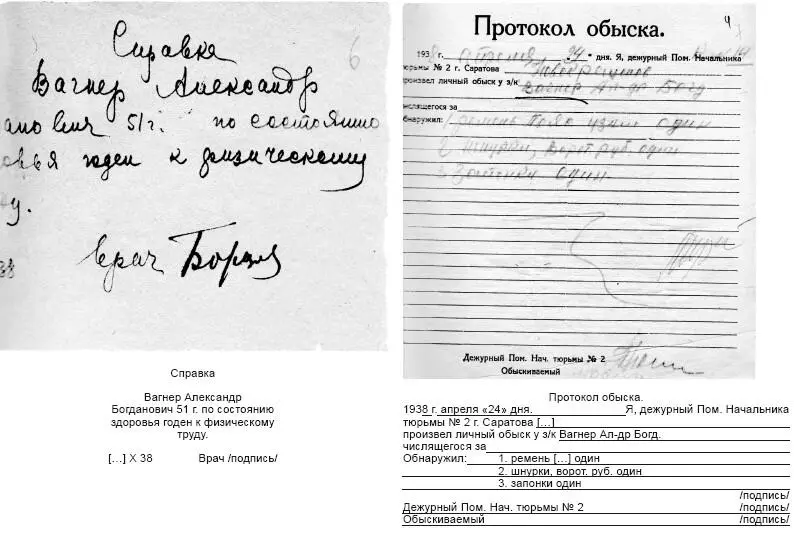 Справка
Вагнер Александр
51 г. по состоянию
годен к физическому
у.
врач
6
4
Протокол обыска.
193 г. апреля „24“ дня. Я, дежурный Пом. Начальника
тюрьмы № 2 г. Саратова
произвел личный обыск у з/к Вагнер Ал-др Богд
числящегося за
обнаружил: 1 ремень один
2 шнурки, ворот. руб. один
3 Запонки один
Дежурный Пом. Нач. тюрьмы № 2
Обыскиваемый
Справка
Вагнер Александр
Богданович 51 г. по состоянию
здоровья годен к физическому
труду.
[...] X 38 Врач /подпись/
Протокол обыска.
1938 г. апреля «24» дня. Я, дежурный Пом. Начальника
тюрьмы № 2 г. Саратова [...]
произвел личный обыск у з/к Вагнер Ал-др Богд.
числящегося за
Обнаружил: 1. ремень [...] один
2. шнурки, ворот. руб. один
3. запонки один
/подпись/
Дежурный Пом. Нач. тюрьмы № 2 /подпись/
Обыскиваемый /подпись/